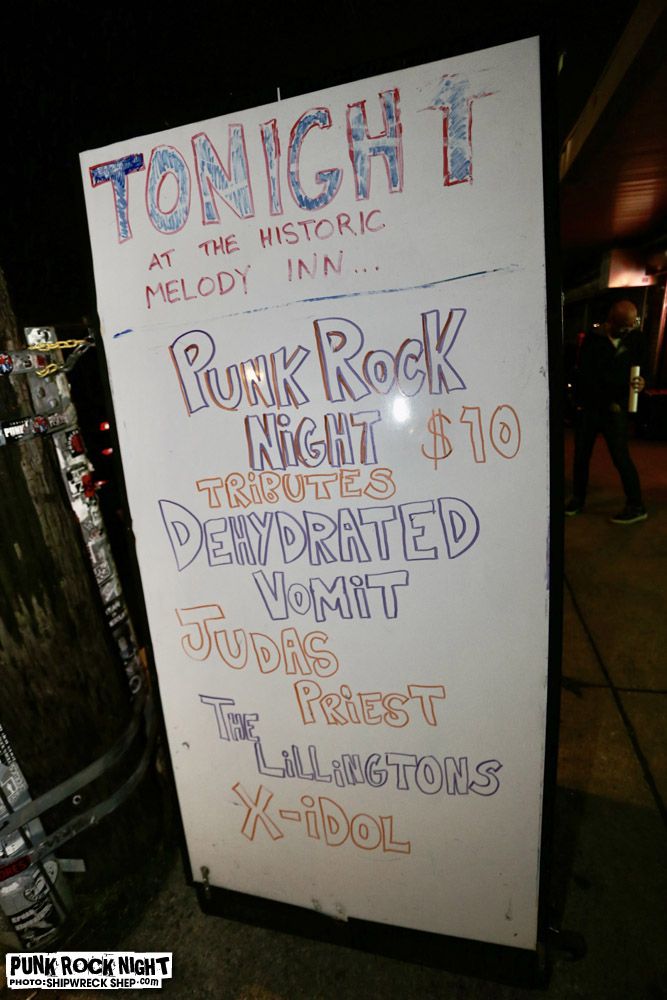 TONIGHT
AT THE HISTORIC
MELODY INN...
PUNK ROCK
NIGHT $10
TRIBUTES
DEHYDRATED
VOMIT
JUDAS
PRIEST
THE
LILLINGTONS
X-IDOL
PUNK ROCK NIGHT
PHOTO:SHIPWRECK SHEP.COM